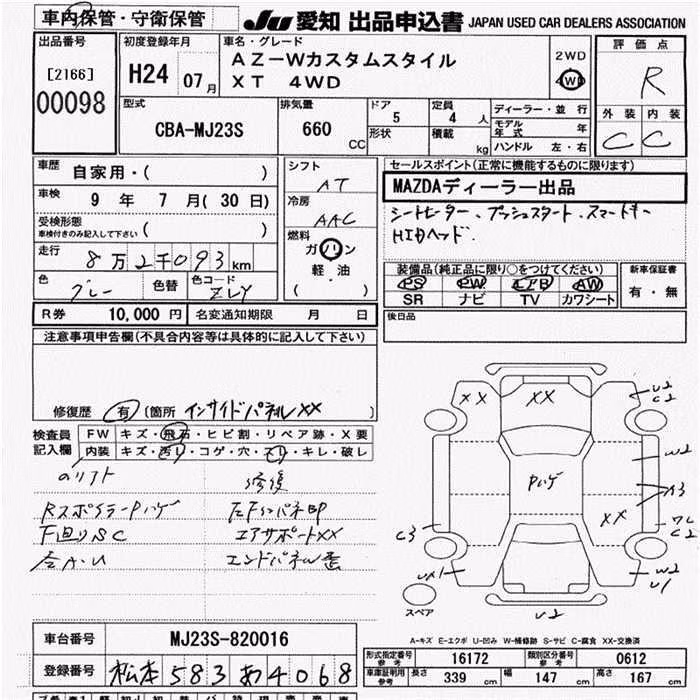 車内保管・守衛保管
JU 愛知 出品申込書 JAPAN USED CAR DEALERS ASSOCIATION
出品番号
[2166]
00098
初度登録年月
H24 07月
車名・グレード
AZ-Wカスタムスタイル
XT 4WD
2WD
4WD
評価点
R
外装 内装
C C
型式
CBA-MJ23S
排気量
660 CC
ドア
5
定員
4人
形状
積載
kg
ディーラー・並行
モデル年式 年
ハンドル 左・右
車歴
自家用・( )
車検
9年 7月(30日)
受検形態
車検付きのみ記入して下さい ( )
走行
8万2千093km
色
グレー
色替
色コード
ZLY
シフト
AT
冷房
AAC
燃料
ガソリン
軽・油
( )
セールスポイント(正常に機能するものに限ります)
MAZDAディーラー出品
シートヒーター、プッシュスタート、スマートキー
HIDヘッド.
装備品(純正品に限り○をつけてください)
PS PW エアB AW
SR ナビ TV カワシート
新車保証書
有・無
R券 10,000円
名変通知期限 月 日
後日品
注意事項申告欄(不具合内容等は具体的に記入して下さい)
修復歴 有 〔箇所 インサイドパネルXX 〕
検査員記入欄
FW キズ・飛石・ヒビ割・リペア跡・X要
内装 キズ・汚レ・コゲ・穴・スレ・キレ・破レ
のリフト 修復
RスポイラーPハゲ
下廻りSC エアサポートXX
全A・U エンドパネル歪
XX
XX
U2
C2
W2
A3
Pハゲ
XX
C3
C2
UX1
W2
U1
U2
スペア
A-キズ E-エクボ U-凹み W-補修跡 S-サビ C-腐食 XX-交換済
車台番号
MJ23S-820016
登録番号
松本 583 あ 4068
形式指定番号 参考
16172
類別区分番号 参考
0612
車庫証明用 参考
長さ 339 cm
幅 147 cm
高さ 167 cm